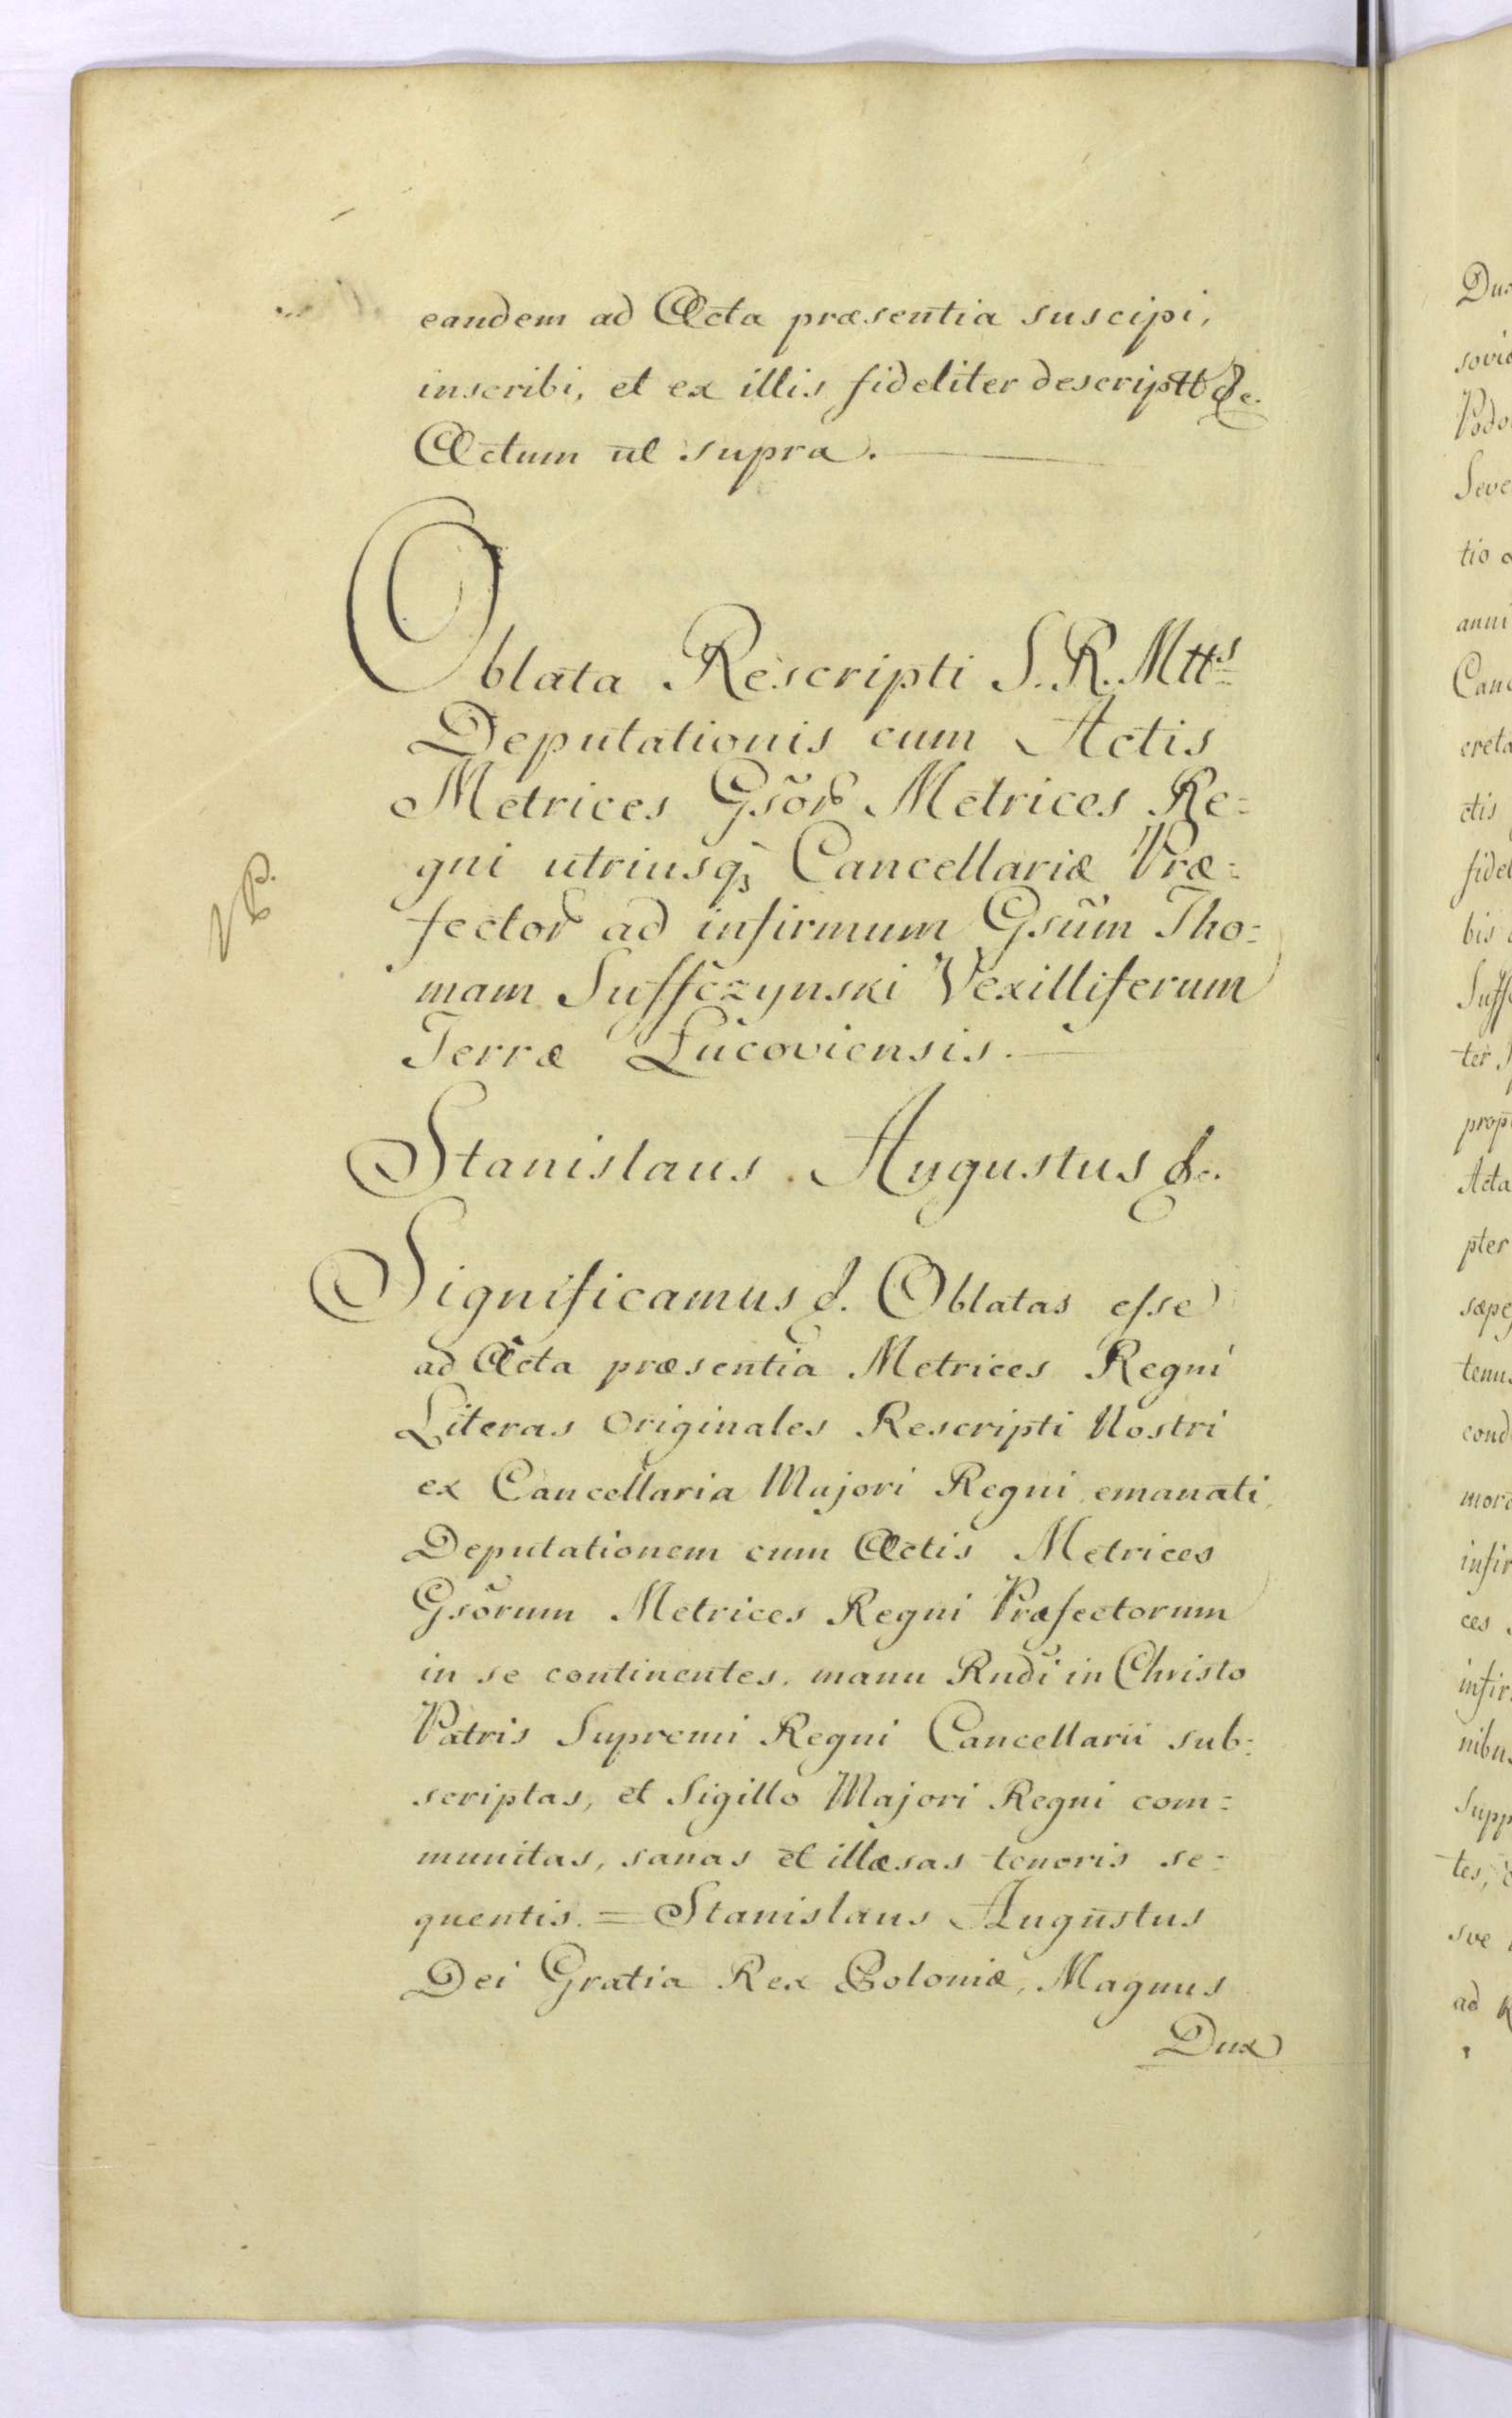 eandem ad Acta præsentia suscipi,
inscribi, et ex illis fideliter descriptt &c.
Actum ut supra.
Oblata Rescripti S. R. Mtts
Deputationis cum Actis
Metrices Gsor Metrices Re=
gni utriusq3 Cancellariæ Præ=
fector ad infirmum Gsum Tho=
mam Suffczynski Vexilliferum
Terræ Lucoviensis.
Stanislaus Augustus &c.
Significamus &. Oblatas esse
ad Acta præsentia Metrices Regni
Literas Originales Rescripti Nostri
ex Cancellaria Majori Regni emanati,
Deputationem cum Actis Metrices
Gsorum Metrices Regni Præfectorum
in se continentes, manu Rndi in Christo
Patris Supremi Regni Cancellarii sub=
scriptas, et Sigillo Majori Regni com=
munitas, sanas et illæsas tenoris se=
quentis. = Stanislaus Augustus
Dei Gratia Rex Poloniæ, Magnus
Dux